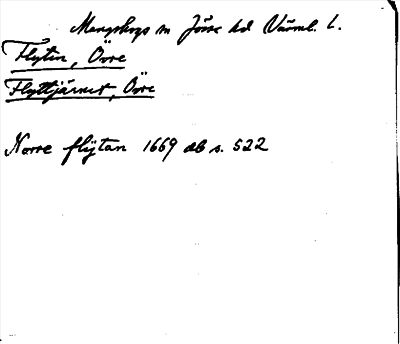 Mangskogs sn Jösse hd Värml. l.
Flyten, Övre
Flyttjärnet, Övre
Norre flÿtan 1669 ab s. 522